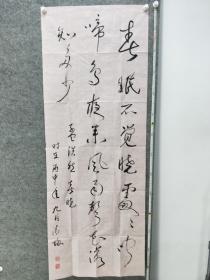 春眠不觉晓處々闻
啼鸟夜来风雨声花落
知多少
孟浩然春晓
时在丙申年九月